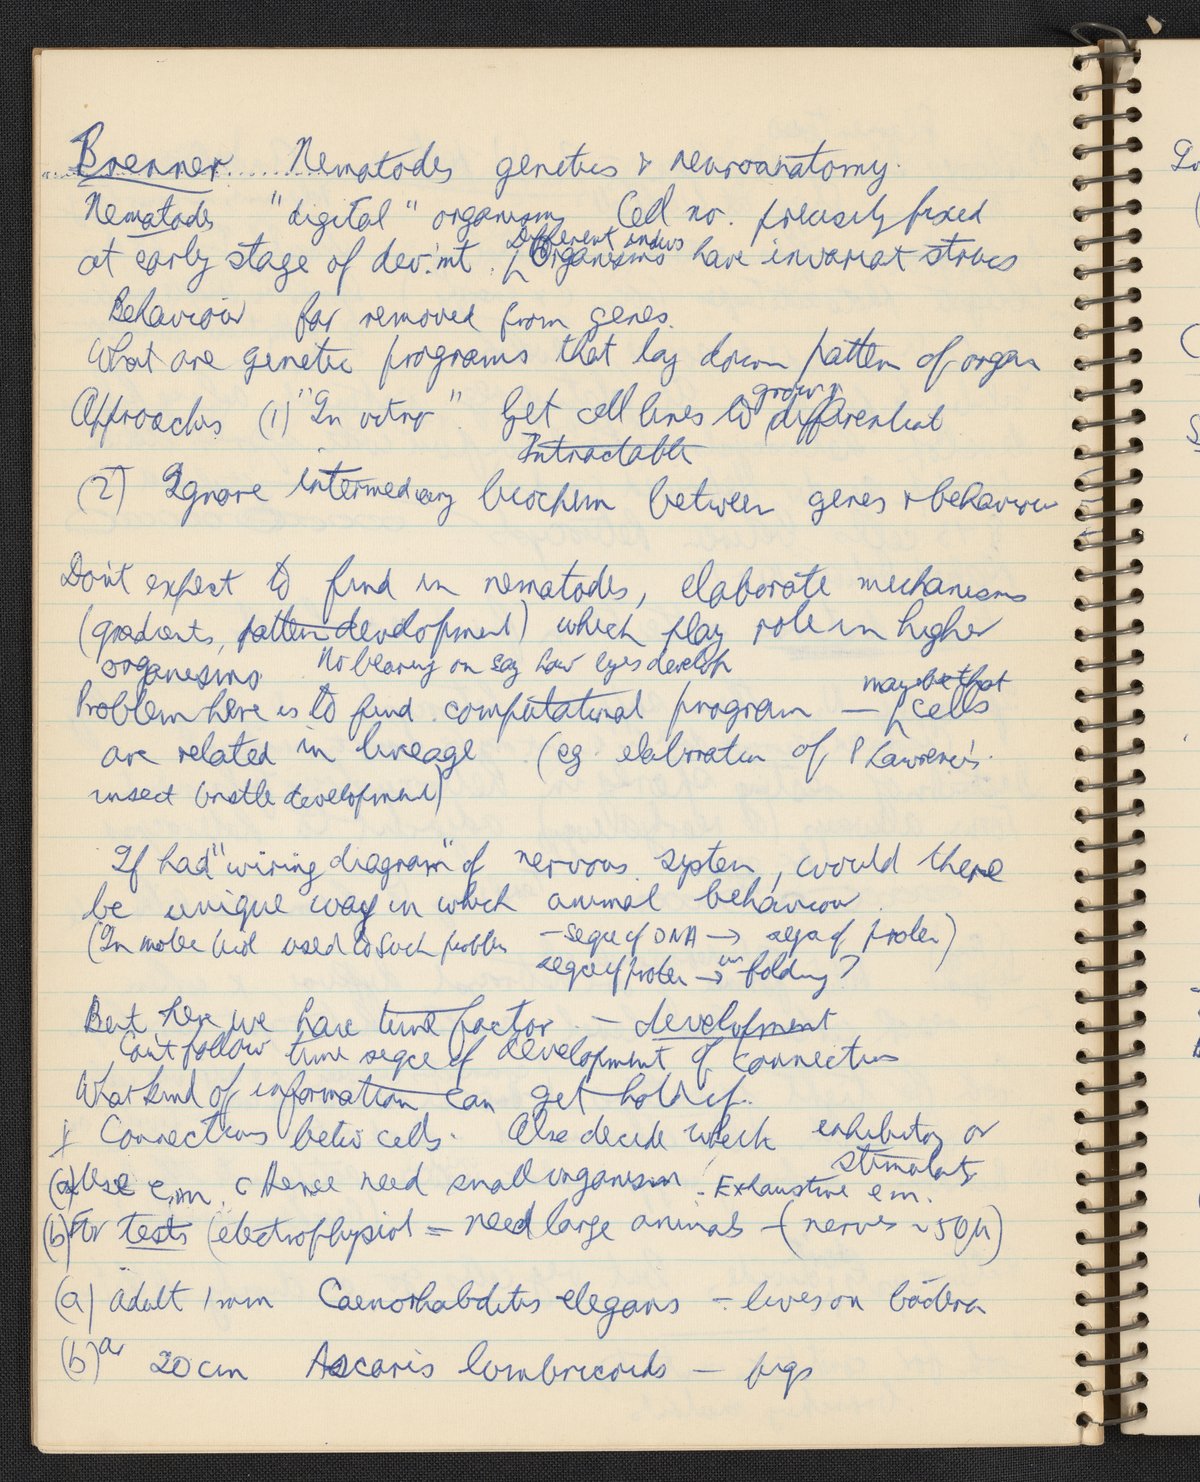 Brenner Nematodes genetics & neuroanatomy.
Nematodes "digital" organisms Cell no. precisely fixed
Different indivs
at early stage of dev.mt. Organisms have invariat strucs
Behaviour far removed from genes.
What are genetic programs that lay down pattern of organ
grown
Approaches (1) "In vitro". Get cell lines to differentiat
Intractable
(2) Ignore intermediary biochem between genes & behaviour
Don't expect to find in nematodes, elaborate mechanisms
(gradients, pattern development) which play role in higher
organisms. No bearing on say how eyes develop
may be that
Problem here is to find computational program — cells
are related in lineage (eg. elaboration of P Lawrence's
insect bristle development)
If had "wiring diagram" of nervous system, would there
be unique way in which animal behaviour.
(In molec biol used to such problems — seqce of DNA → seqce of protein)
seqce of protein → folding?
But here we have time factor. — development
Can't follow time seqce of development of connections
What kind of information can get hold of.
Connections betw cells. Also decide which inhibitory or
stimulatory
(a) Use e.m. Hence need small organism. Exhaustive em.
(b) For tests (electrophysiol = need large animals — (nerves ~50μ)
(a) Adult 1 mm Caenorhabditis elegans — lives on bacteria
(b) 20 cm Ascaris lumbricoids — pigs